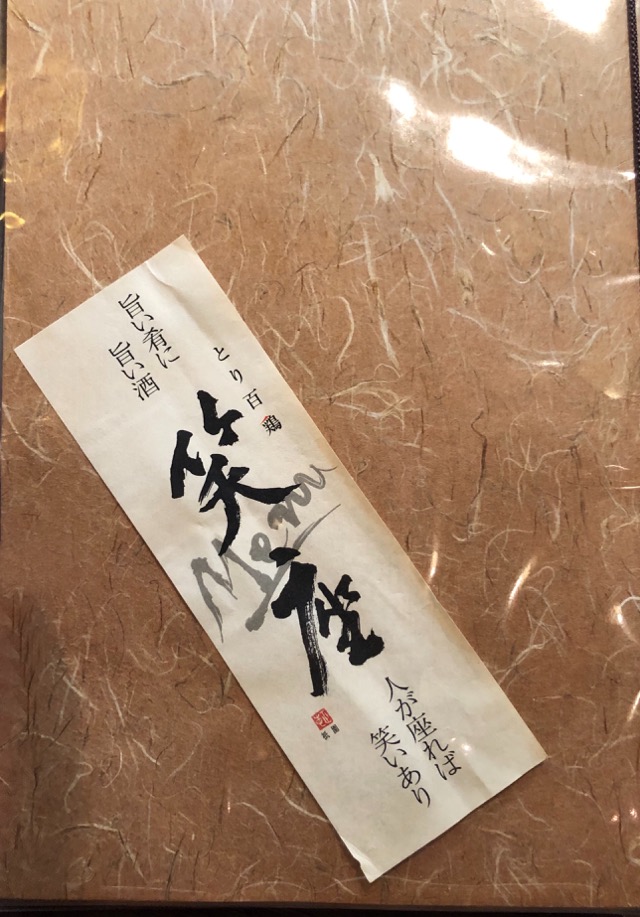 とり百鶏
旨い肴に
旨い酒
笑座
Menu
人が座れば
笑いあり